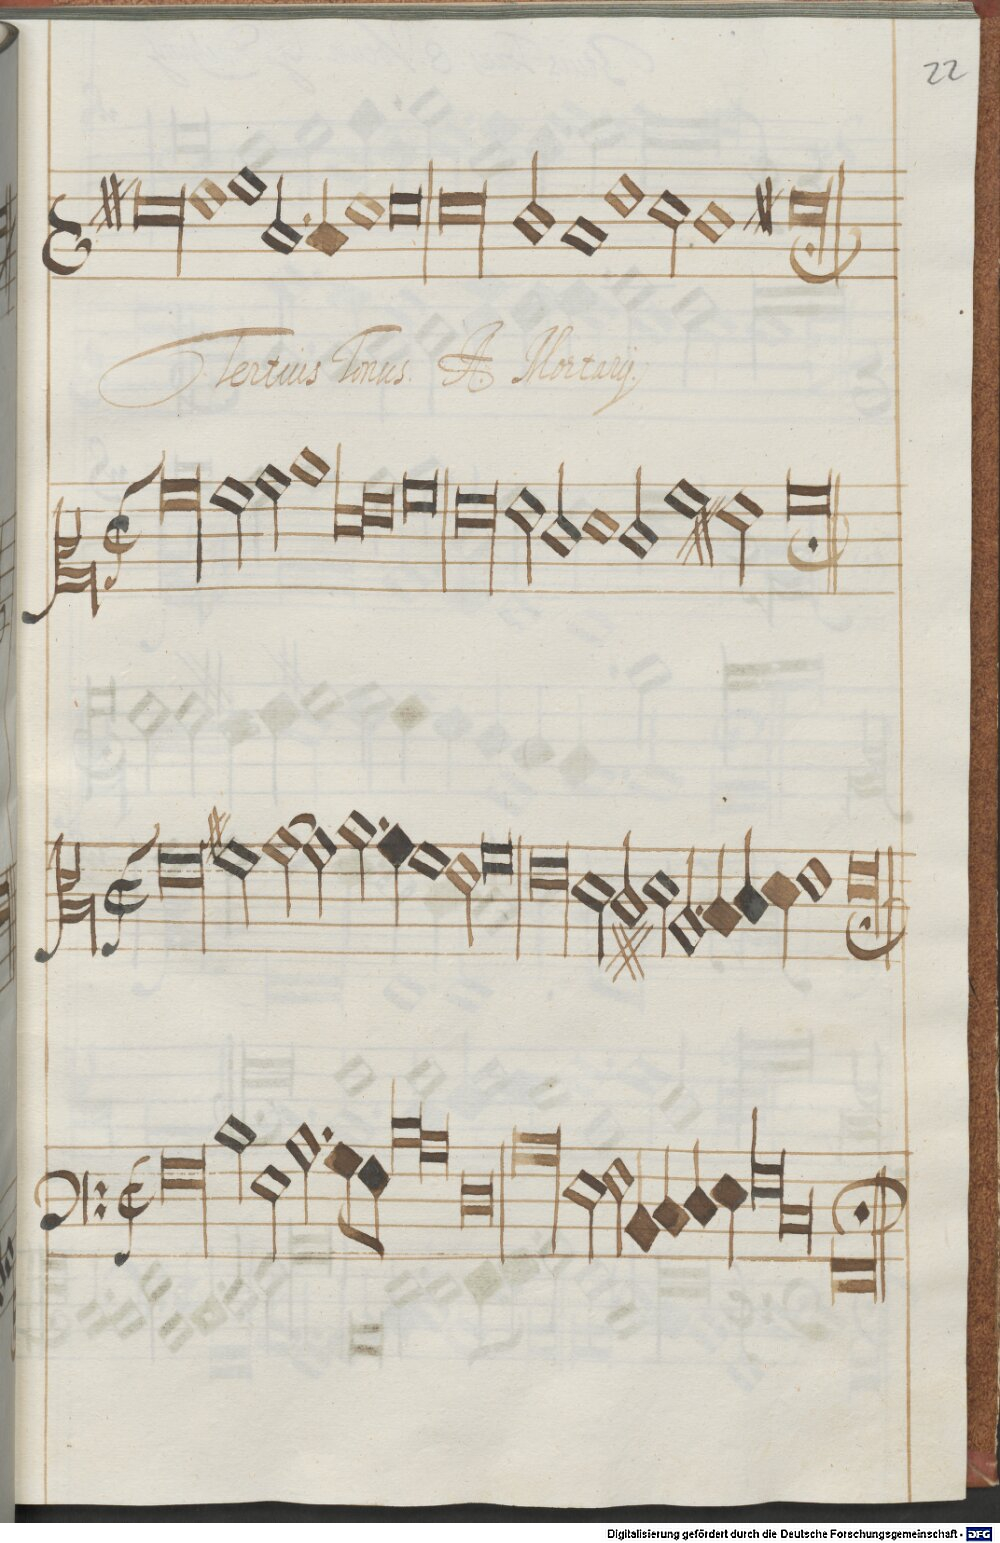 22
Tertius Tonus. A. Mortarij.
Digitalisierung gefördert durch die Deutsche Forschungsgemeinschaft - DFG